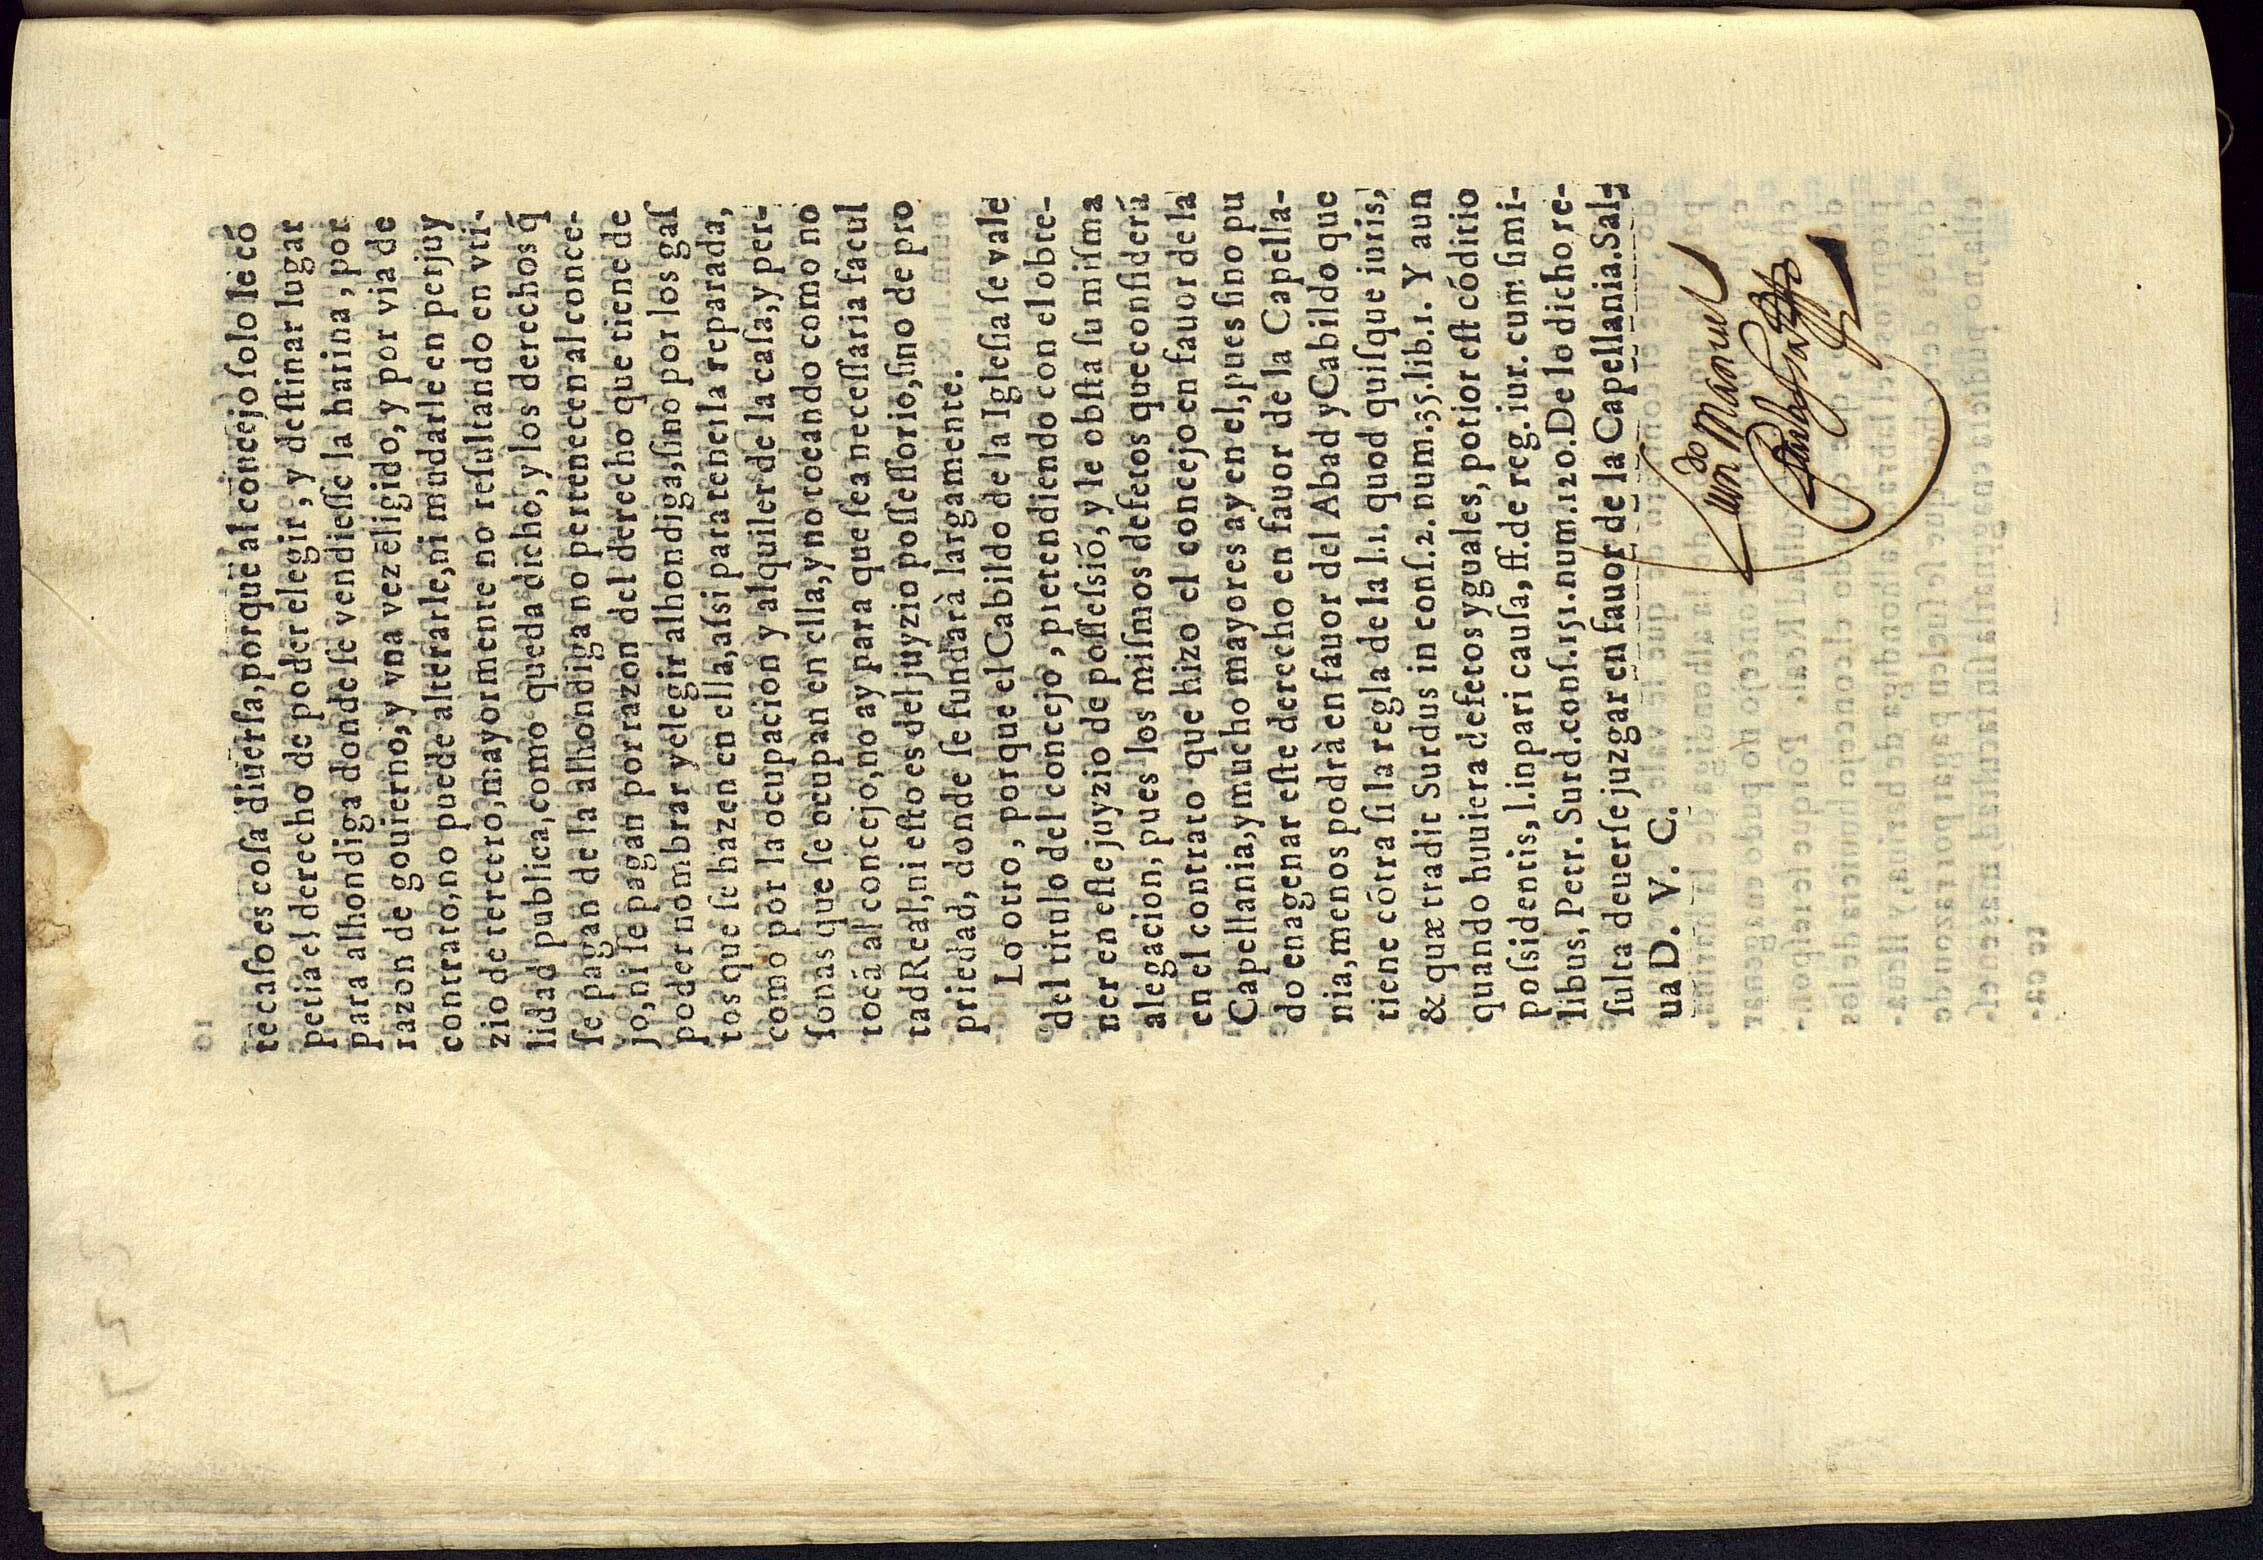 te caſo es coſa diuerſa, porque al concejo ſolo le cō
petia el derecho de poder elegir, y deſtinar lugar
para alhondiga donde ſe vendieſſe la harina, por
razon de gouierno, y vna vez eligido, y por via de
contrato, no puede alterarle, ni mudarle en perjuy
zio de tercero, mayormente no reſultando en vti-
lidad publica, como queda dicho, y los derechos q̃
ſe pagan de la alhondiga no pertenecen al conce-
jo, ni ſe pagan por razon del derecho que tiene de
poder nombrar y elegir alhondiga, ſino por los gaſ
tos que ſe hazen en ella, aſsi para tenerla reparada,
como por la ocupacion y alquiler de la caſa, y per-
ſonas que ſe ocupan en ella, y no tocando como no
toca al concejo, no ay para que ſea neceſſaria facul
tad Real, ni eſto es del juyzio poſſeſſorio, ſino de pro
priedad, donde ſe fundarà largamente.
Lo otro, porque el Cabildo de la Igleſia ſe vale
del titulo del concejo, pretendiendo con el obte-
ner en eſte juyzio de poſſeſsiō, y le obſta ſu miſma
alegacion, pues los miſmos defetos que conſiderá
en el contrato que hizo el concejo en fauor de la
Capellania, y mucho mayores ay en el, pues ſino pu
do enagenar eſte derecho en fauor de la Capella-
nia, menos podrà en fauor del Abad y Cabildo que
tiene cōtra ſi la regla de la l.1. quod quiſque iuris,
& quæ tradit Surdus in conſ.2.num.35.lib.1. Y aun
quando huuiera defetos yguales, potior eſt cōditio
poſsidentis, l.in pari cauſa, ff. de reg. iur. cum ſimi-
libus, Petr. Surd. conſ.151.num.120. De lo dicho re-
ſulta deuerſe juzgar en fauor de la Capellania. Sal-
ua D. V. C.
Manuel